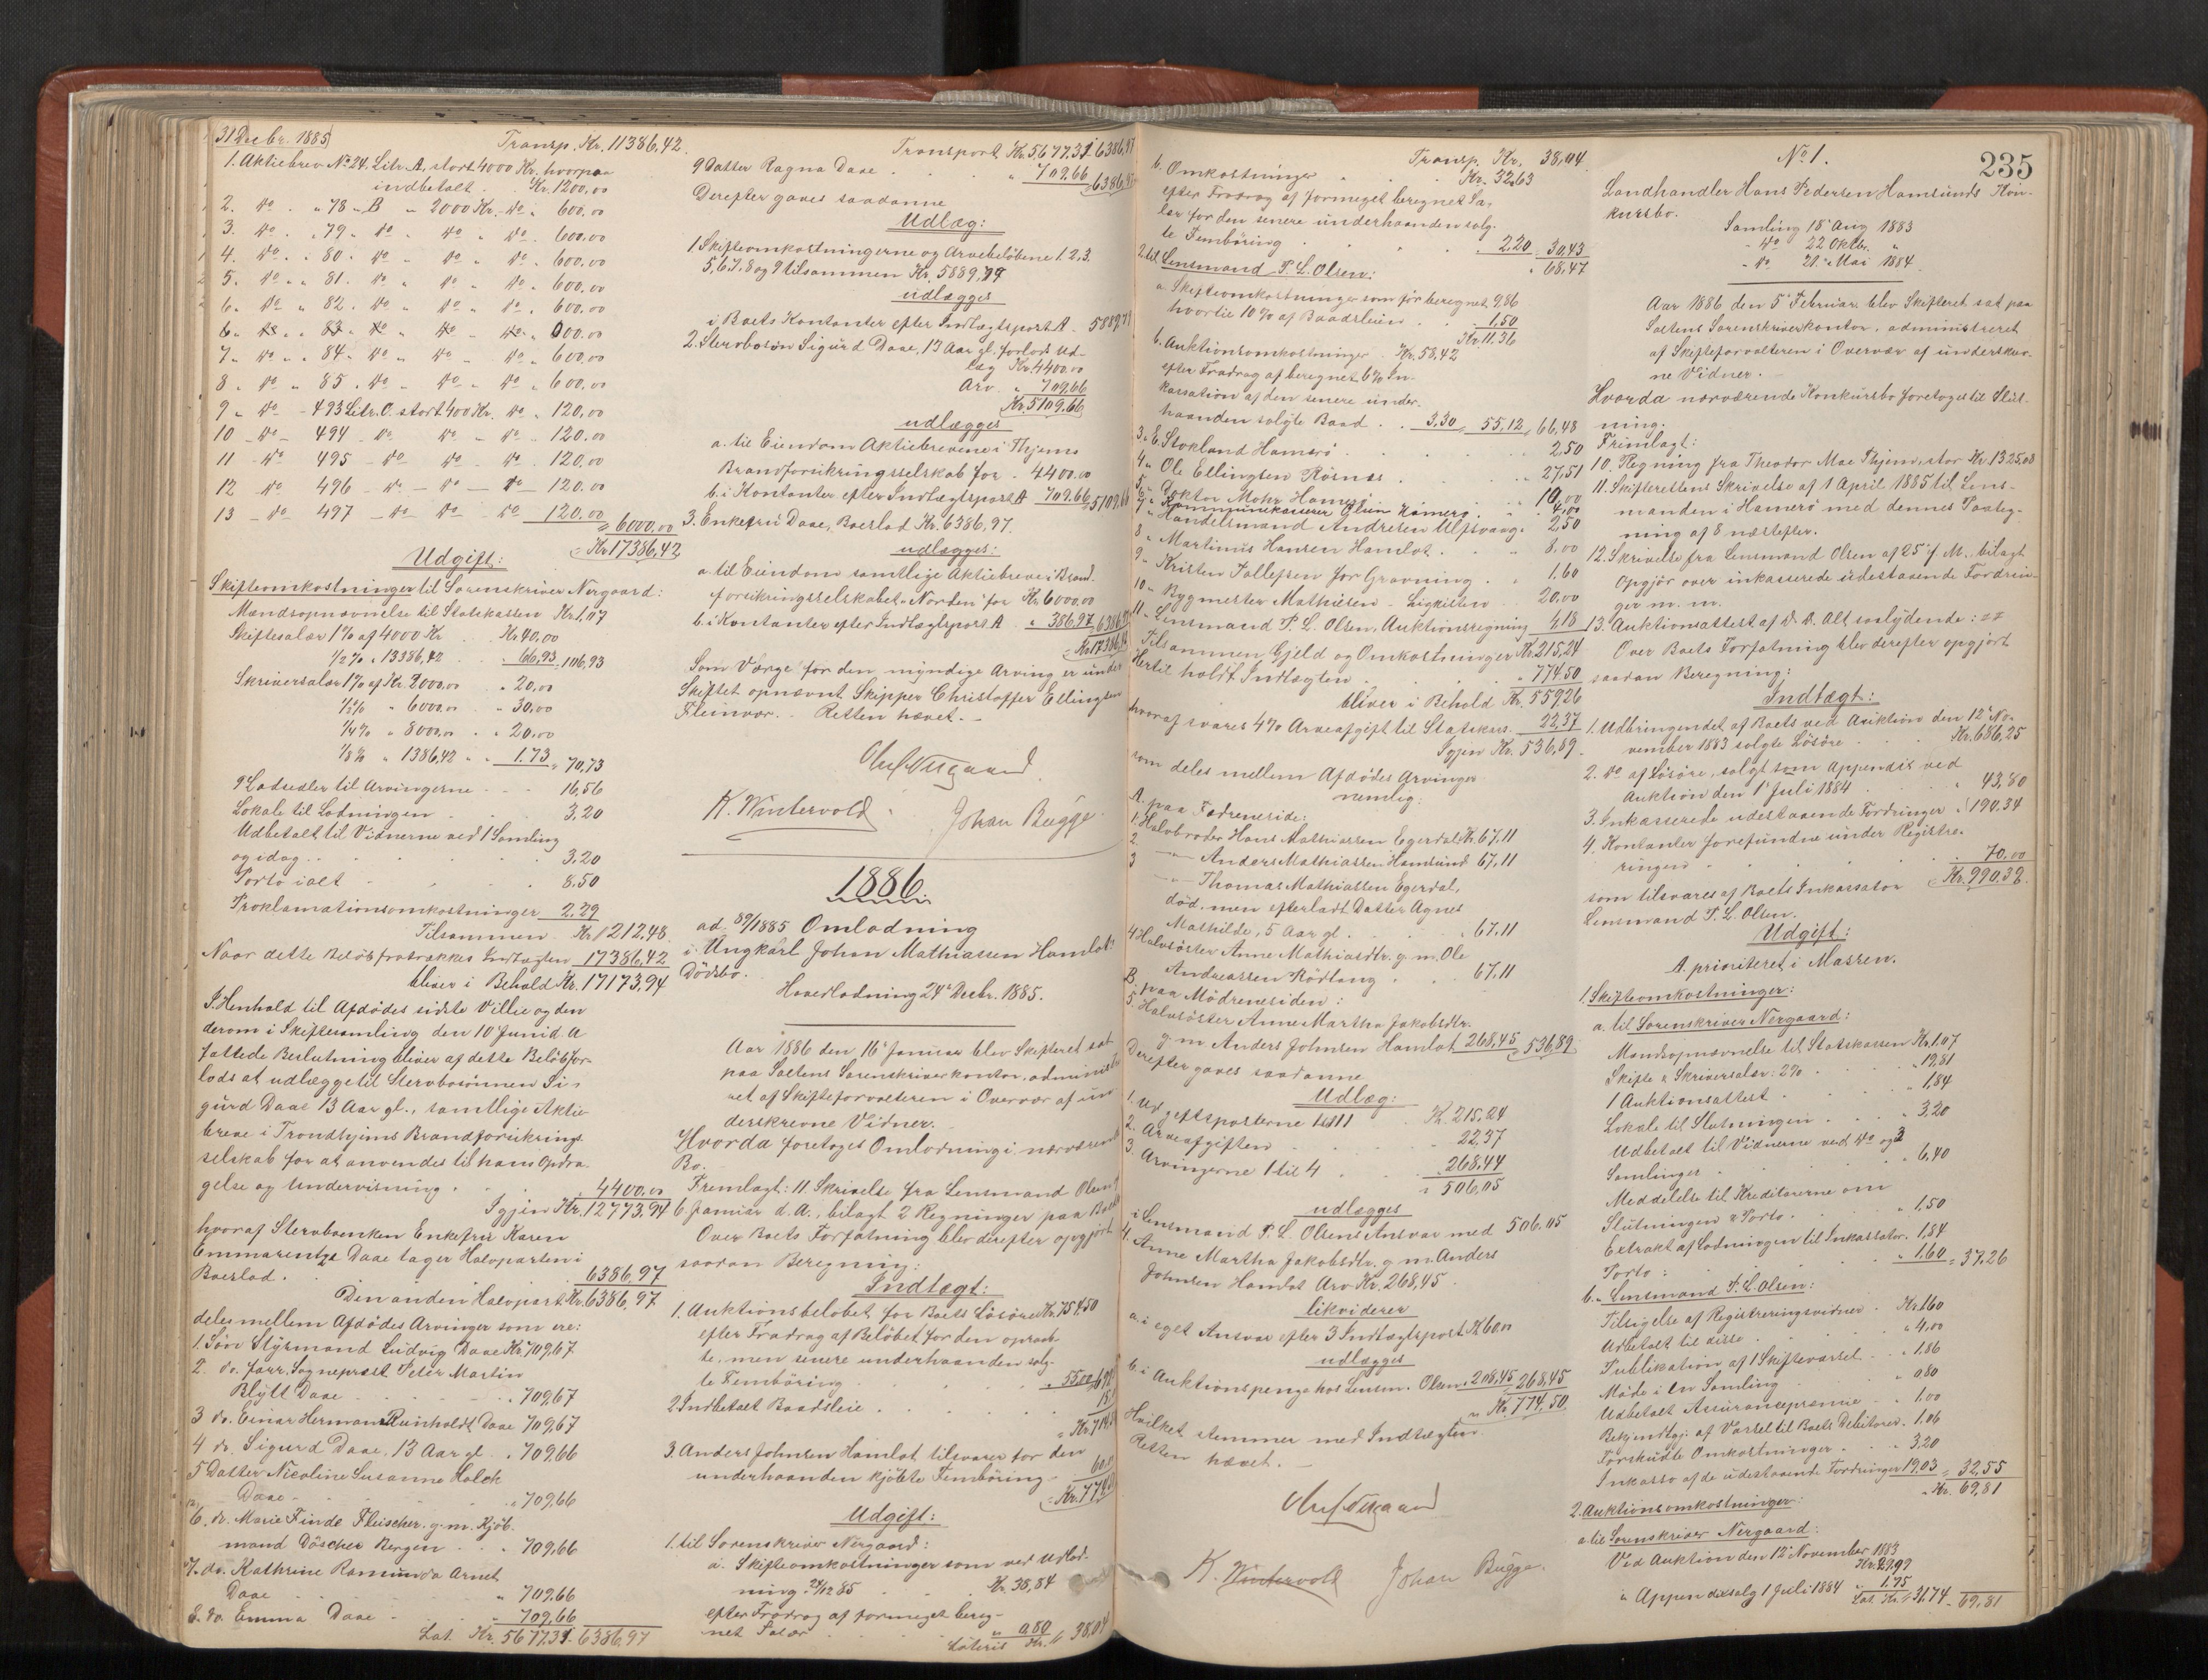 31 Decbr. 1885
Transp. Kr. 11386,42
1. Aktiebrev No 24. Litr. A, stort 4000 Kr. hvorpaa
indbetalt . Kr. 1200,00
2. do . " 78 " B " 2000 Kr. " do " 600,00
3. do . " 79 " do " do " do . 600,00
4. do . " 80 " do " do " do . 600,00
5. do " " 81. do " do " do . 600,00
6. do " " 82. do " do " do . 600,00
7 " do " " 84 " do " do " do " 600,00
8 " do " 85. do " do " do " 600,00
9 " do - 493 Litr. C. stort 400 Kr. do " 120,00
10 - do - 494 - do do - do .. 120,00
11 - do 495 - do do . do . 120,00
12 do 496 - do - do - do - 120,00
13 - do 497 - do - do - do 120,00
= 6000,00
= Kr. 17386,42
Udgift:
Skifteomkostninger til Sorenskriver Nergaard:
Mandsopnævnelse til Statskassen Kr. 1,07
Skiftesalær 1% af 4000 Kr . Kr. 40,00
1/2% " 13386,42 . " 66,93 106,93
Skriversalær 1% af Kr. 2000,00 " 20,00
1/2% " 6000,00 " 30,00
1/4% " 8000,00 " 20,00
1/8% " 1386,42 " 1.73 " 70,73
9 Lodsedler til Arvingerne - - . 16,56
Lokale til Lodningen . . 3,20
Udbetalt til Vidnerne ved 1 Samling
og idag . . . . . 3,20
Porto ialt - . . . 8,50
Proklamationsomkostninger 2,29
Tilsammen . Kr. 212,48
Naar dette Beløb fratrækkes Indtægten 17386,42
bliver i Behold Kr. 17173,94
I Henhold til Afdødes sidste Villie og den
derom i Skiftesamling den 10 Juni d. A
fattede Beslutning bliver af dette Beløb for-
lods at udlægge til Stervbosønnen Si-
gurd Daae 13 Aar gl., samtlige Aktie-
breve i Trondhjems Brandforsikrings-
selskab for at anvendes til hans Opdra-
gelse og Undervisning . . 4400,00
Igjen Kr. 12773,94
hvoraf Stervboenken Enkefru Karen
Emmarentze Daae tager Halvparten i
Boeslod . 6386,97
Den anden Halvpart Kr. 6386,97
deles mellem Afdødes Arvinger som ere:
1. Søn Styrmand Ludvig Daae Kr. 709,67
2. do. Sogneprest Peter Martin
Blytt Daae . . 709,67
3 do. Einar Herman Reinholdt Daae 709,67
4 do. Sigurd Daae, 13 Aar gl . 709,66
5 Datter Nicoline Susanne Holck
Daae - . . " 709,66
6. do. Marie Finde Fleischer, g. m. Kjøb-
mand Döscher Bergen . . " 709,66
7. do. Kathrine Ramunda Arnet
Daae . . . " 709,66
8. do. Emma Daae - . " 709,66
Lat. Kr. 5677,31 6386,97
Transport Kr. 5,677,31 6386,97
9 Datter Ragna Daae . . " 709,66 6386,97
Derefter gaves saadanne
Udlæg:
1. Skifteomkostningerne og Arvebeløbene 1. 2. 3.
5. 6. 7. 8 og 9 tilsammen Kr. 5889,79
udlægges
i Boets Kontanter efter Indtægtspost A . 5889,79
2. Stervbosøn Sigurd Daae, 13 Aar gl. forlods Ud-
læg Kr. 4400,00
Arv . " 709,66
Kr. 5109,66
udlægges
a. til Eiendom Aktiebrevene i Thjems
Brandforsikringsselskab for . 4400,00
b. i Kontanter efter Indtægtspost A 709,66 5109,66
3. Enkefru Daae, Boeslod Kr. 6386,97.
udlægges:
a. til Eiendom samtlige Aktiebreve i Brand-
forsikringsselskabet "Norden" for Kr. 6000,00
b. i Kontanter efter Indtægtspost A . 386,97 6386,97
Kr. 17386,42
Som Værge for den myndige Arving er under
Skiftet opnævnt Skipper Christoffer Ellingsen
Fleinvær. . Retten hævet. -
Oluf Nergaard
K. Wintervold . Johan Bugge.
1886.
ad. 89/1885 Omlodning
i Ungkarl Johan Mathiassen Hamlots
Dødsbo.
Hovedlodning 24' Decbr. 1885.
Aar 1886 den 16' Januar blev Skifteret sat
paa Saltens Sorenskriverkontor, administre
ret af Skifteforvalteren i Overvær af un-
derskrevne Vidner. -
Hvorda foretoges Omlodning i nærværende
Bo.
Fremlagt: 11. Skrivelse fra Lensmand Olsen af
6 Januar d. A., bilagt 2 Regninger paa Boet
Over Boets Forfatning blev derefter opgjort
saadan Beregning:
Indtægt:
1. Auktionsbeløbet for Boets Løsøre Kr. 754,50
efter Fradrag af Beløbet for den opraab-
te, men senere underhaanden solg-
te Fembøring . . " 55,00
2. Indbetalt Baadsleie . .
3. Anders Johnsen Hamlot tilsvarer for den
underhaanden kjøbte Fembøring -
Udgift:
1. til Sorenskriver Nergaard:
a. Skifteomkostninger som ved Udlod-
ning 24/12 85 . . Kr. 38,84
efter Fradrag af formeget bereg-
net Salær . . " 0,80
Lateris Kr. 38,04
Transp. Kr. 38,04
b. Omkostninger . . Kr. 32,63
efter Fradrag af formeget beregnet Sa-
lær for den senere underhaanden solg-
te Fembøring . . . 2,20 30,43
" 68,47
2. til Lensmand P. L. Olsen:
a. Skifteomkostninger som før beregnet 9,86
hvortil 10% af Baadsleien . . 1,50
Kr. 11,36
b. Auktionsomkostninger . Kr. 58,42
efter Fradrag af beregnet 6% In-
kassation af den senere under-
haanden solgte Baad . . 3,30 " 55,12 " 66,48
3. " E. Stokland Hamarø . . . . . 2,50
4 " Ole Ellingsen Røsnæs . . . 27,51
5 " Doktor Mohr Hamarø . . . 10,00
6 " Kommunekasserer Olsen Hamerø. . " 4,00
7 " Handelsmand Andresen Ulfsvaag. . 2,50
8 " Martinus Hansen Hamlot . . " 8,00
9 " Kristen Tollefsen for Gravning . . 1,60
10 " Bygmester Mathisen - Ligkisten . 20,00
11 " Lensmand P. L. Olsen, Auktionsregning 4,18
Tilsammen Gjeld og Omkostninger Kr. 215,24
Hertil holdt Indtægten . . " 774,50
bliver i Behold Kr. 559,26
hvoraf svares 4% Arveafgift til Statskas. . 22,37
Igjen Kr. 536,89
som deles mellem Afdødes Arvinger
nemlig:
A. paa Fædreneside:
1. Halvbroder Hans Mathiassen Egerdal Kr. 67,11
2. " - Anders Mathiassen Hamsund 67,11
3 " - Thomas Mathiassen Egerdal,
død. men efterladt Datter Agnes
Mathilde, 5 Aar gl. . . " 67,11
4 Halvsøster Anne Mathiasdtr. g. m. Ole
Andreassen Rødtang . . " 67,11
B. paa Mødrenesiden:
5. Halvsøster Anne Martha Jakobsdtr.
g. m Anders Johnsen Hamlot 268,45 = 536,89
Derefter gaves saadanne
Udlæg:
1. Udgiftsposterne 1 til 11 . Kr. 215,24
2. Arveafgiften . . . 22,37
3. Arvingerne 1 til 4 . . " 268,44
" 506,05
udlægges
i Lensmand P. L. Olsens Ansvar med 506,05
4. Anne Martha Jakobsdtr. g. m. Anders
Johnsen Hamlot Arv Kr. 268,45.
likviderer
a. i eget Ansvar efter 3 Indtægtspost Kr. 60,00
udlægges
b. i Auktionspenge hos Lensm. Olsen " 208,45 268,45
" Kr. 774,50
Hvilket stemmer med Indtægten.
Retten hævet. -
Oluf Nergaard
K. Wintervold Johan Bugge.
No 1.
235
Landhandler Hans Pedersen Hamsunds Kon-
kursbo.
Samling 18' Aug 1883
- do 22 Oktbr. "
- do 21' Mai 1884
Aar 1886 den 5' Februar blev Skifteret sat paa
Saltens Sorenskriverkontor, administreret
af Skifteforvalteren i Overvær af underskrev-
ne Vidner. -
Hvorda nærværende Konkursbo foretoges til Slut-
ning.
Fremlagt:
10. Regning fra Theodor Moe Thjem, stor Kr. 1325,08
11. Skifterettens Skrivelse af 1 April 1885 til Lens-
manden i Hamerø med dennes Paateg-
ning af 8 næstefter.
12. Skrivelse fra Lensmand Olsen af 25' f. M., bilagt
Opgjør over inkasserede udestaaende Fordrin-
ger m. m.
13. Auktionsattest af d. D. Alt saalydende:
Over Boets Forfatning blev derefter opgjort
saadan Beregning:
Indtægt:
1. Udbringendet af Boets ved Auktion den 12' No-
vember 1883 solgte Løsøre . . Kr. 686,25
2. do af Løsøre, solgt som Appendix ved
Auktion den 1' Juli 1884 . . " 43,80
3. Inkasserede udestaaende Fordringer " 190,34
4. Kontanter forefundne under Registre-
ringen . . . . 70,00
som tilsvares af Boets Inkassator Kr. 990,39.
Lensmand P. L. Olsen.
Udgift:
A. prioriteret i Massen.
1. Skifteomkostninger:
a. til Sorenskriver Nergaard:
Mandsopnævnelse til Statskassen Kr. 1,07
Skifte & Skriversalær: 2% . . " 19,81
1 Auktionsattest . . . " 1,84
Lokale til Slutningen . . " 3,20
Udbetalt til Vidnerne ved do og 3
Samlinger . . . " 6,40
Meddelelse til Kreditorerne om
Slutningen & Porto . . . " 1,50
Extrakt af Lodningen til Inkassator. 1,84
Porto : . . . " 1,60 = 37,26
b. " Lensmand P. L. Olsen:
Tilsigelse af Registreringsvidner . Kr. 1,60
Udbetalt til disse . . " 4,00
Publikation af 1 Skiftevarsel . . " 1,86
Møde i en Samling . . " 0,80
Udbetalt Assurancepræmie . . " 1,00
Bekjendtgj. af Varsel til Boets Debitorer. 1,06
Forskudte Omkostninger . . " 3,20
Inkasso af de udestaaende Fordringer 19,03 = 32,55
" Kr. 69,81
2. Auktionsomkostninger:
a til Sorenskriver Nergaard:
Ved Auktion den 12' November 1883
Kr. 29,99
" Appendixsalg 1 Juli 1884 " 1,75
Lat. Kr. 31,74 - 69,81